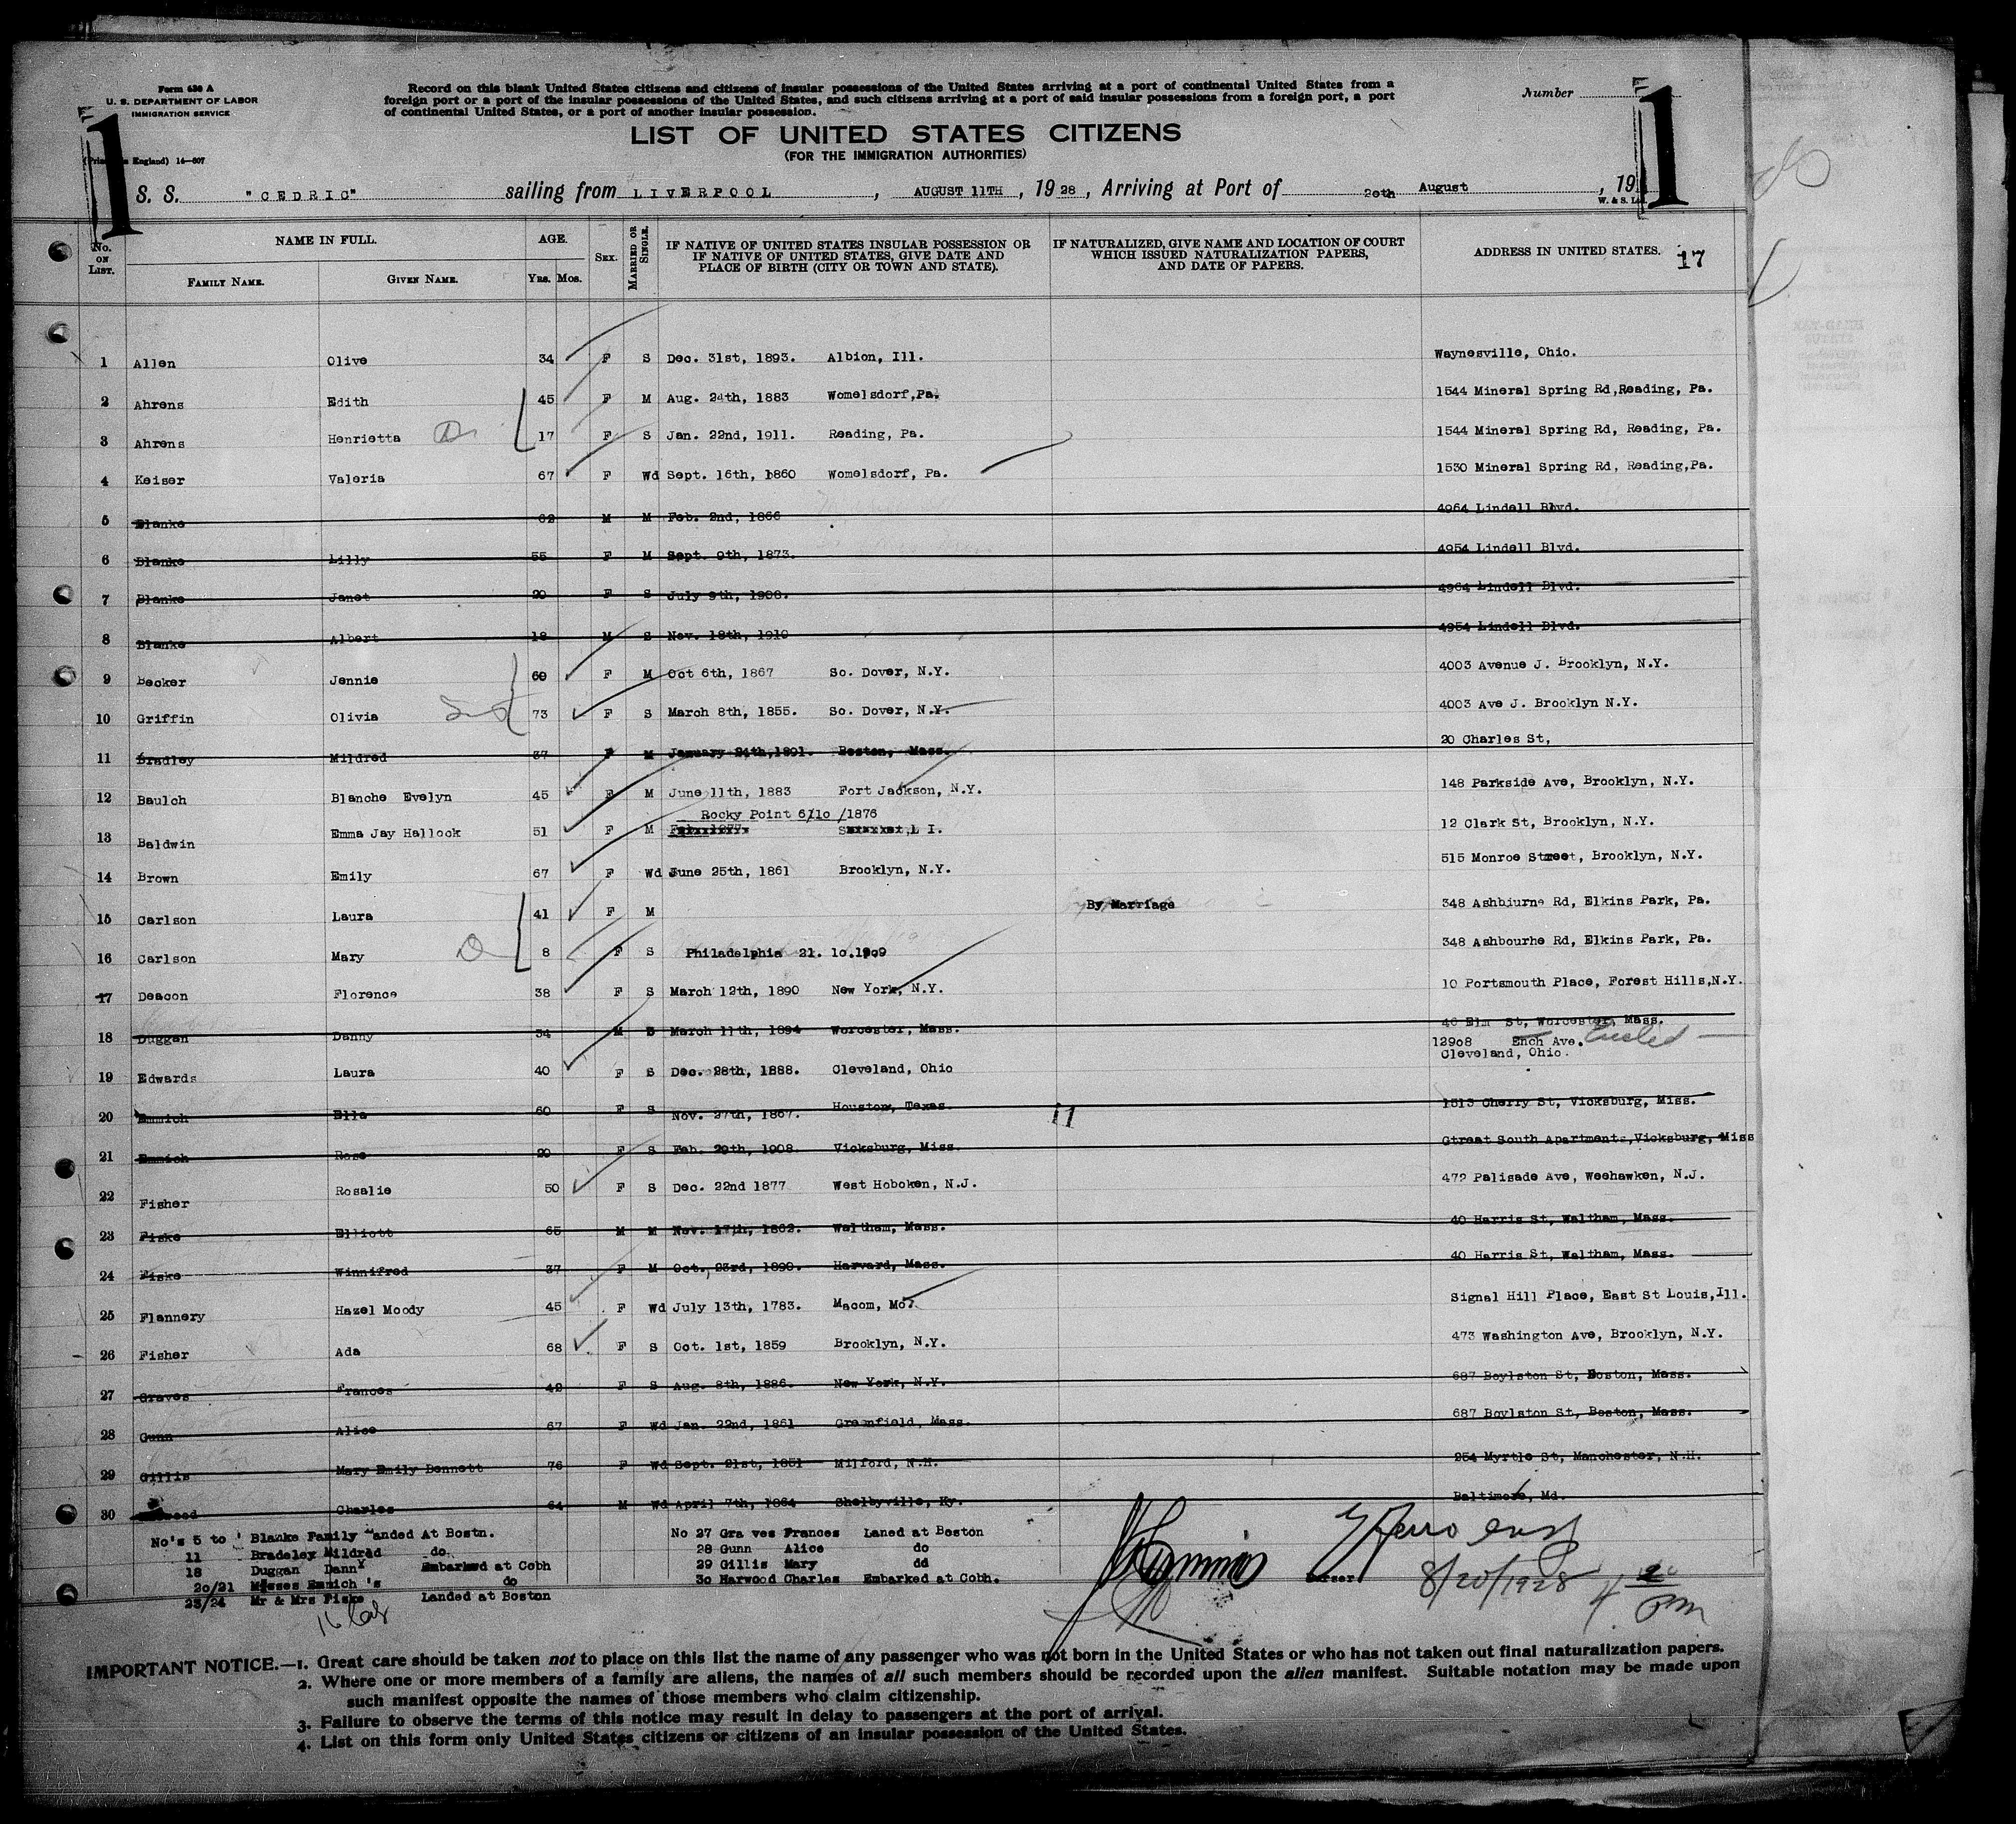 Form 630 A
U. S. DEPARTMENT OF LABOR
IMMIGRATION SERVICE
England) 14—607
Record on this blank United States citizens and citizens of insular possessions of the United States arriving at a port of continental United States from a
foreign port or a port of the insular possessions of the United States, and such citizens arriving at a port of said insular possessions from a foreign port, a port
of continental United States, or a port of another insular possession.
Number
1 1
LIST OF UNITED STATES CITIZENS
(FOR THE IMMIGRATION AUTHORITIES)
S. S. "CEDRIC" sailing from LIVERPOOL, AUGUST 11TH, 1928, Arriving at Port of 20th August, 19
W. & S. L
No. ON LIST. NAME IN FULL. FAMILY NAME. GIVEN NAME. AGE. YRS. MOS. SEX. MARRIED OR SINGLE. IF NATIVE OF UNITED STATES INSULAR POSSESSION OR IF NATIVE OF UNITED STATES, GIVE DATE AND PLACE OF BIRTH (CITY OR TOWN AND STATE). IF NATURALIZED, GIVE NAME AND LOCATION OF COURT WHICH ISSUED NATURALIZATION PAPERS, AND DATE OF PAPERS. ADDRESS IN UNITED STATES. 17
1 Allen Olive 34 F S Dec. 31st, 1893. Albion, Ill. Waynesville, Ohio.
2 Ahrens Edith 45 F M Aug. 24th, 1883 Womelsdorf,Pa. 1544 Mineral Spring Rd,Reading, Pa.
3 Ahrens Henrietta 17 F S Jan. 22nd, 1911. Reading, Pa. 1544 Mineral Spring Rd, Reading, Pa.
4 Keiser Valeria 67 F Wd Sept. 16th, 1860 Womelsdorf, Pa. 1530 Mineral Spring Rd, Reading,Pa.
5 Blanke 62 M M Feb. 2nd, 1866 4964 Lindell Blvd.
6 Blanke Lilly 55 F M Sept. 9th, 1873. 4954 Lindell Blvd.
7 Blanke Janet 20 F S July 9th, 1908. 4964 Lindell Blvd.
8 Blanke Albert 18 M S Nov. 18th, 1910 4954 Lindell Blvd.
9 Becker Jennie 60 F M Oct 6th, 1867 So. Dover, N.Y. 4003 Avenue J. Brooklyn, N.Y.
10 Griffin Olivia 73 F S March 8th, 1855. So. Dover, N.Y. 4003 Ave J. Brooklyn N.Y.
11 Bradley Mildred 37 F M January 24th,1891. Boston, Mass. 20 Charles St,
12 Baulch Blanche Evelyn 45 F M June 11th, 1883 Fort Jackson, N.Y. 148 Parkside Ave, Brooklyn, N.Y.
Rocky Point 6/10/1876
13 Baldwin Emma Jay Hallock 51 F M L I. 12 Clark St, Brooklyn, N.Y.
14 Brown Emily 67 F Wd June 25th, 1861 Brooklyn, N.Y. 515 Monroe Street, Brooklyn, N.Y.
15 Carlson Laura 41 F M By Marriage 348 Ashbiurne Rd, Elkins Park, Pa.
16 Carlson Mary 8 F S Philadelphia 21. 10.1909 348 Ashbourhe Rd, Elkins Park, Pa.
17 Deacon Florence 38 F S March 12th, 1890 New York, N.Y. 10 Portsmouth Place, Forest Hills,N.Y.
18 Duggan Danny 34 M S March 11th, 1894 Worcester, Mass. 46 Elm St, Worcester, Mass.
12908 Ench Ave. Euclid
19 Edwards Laura 40 F S Dec. 28th, 1888. Cleveland, Ohio Cleveland, Ohio.
20 Emmich Ella 60 F S Nov. 27th, 1867. Houston, Texas 1513 Cherry St, Vicksburg, Miss.
21 Emmich Rose 20 F S Feb. 29th, 1908. Vicksburg, Miss. Gtreat South Apartments,Vicksburg, Miss
22 Fisher Rosalie 50 F S Dec. 22nd 1877 West Hoboken, N.J. 472 Palisade Ave, Weehawken, N.J.
23 Fiske Elliott 65 M M Nov. 17th, 1862. Waltham, Mass. 40 Harris St, Waltham, Mass.
24 Fiske Winnifred 37 F M Oct. 23rd, 1890. Harvard, Mass. 40 Harris St, Waltham, Mass.
25 Flannery Hazel Moody 45 F Wd July 13th, 1783. Macom, Mo. Signal Hill Place, East St Louis,Ill.
26 Fisher Ada 68 F S Oct. 1st, 1859 Brooklyn, N.Y. 473 Washington Ave, Brooklyn, N.Y.
27 Graves Frances 42 F S Aug. 8th, 1886. New York, N.Y. 687 Boylston St, Boston, Mass.
28 Gunn Alice 67 F Wd Jan. 22nd, 1861 Greenfield, Mass. 687 Boylston St, Boston, Mass.
29 Gillis Mary Emily Bennett 76 F Wd Sept. 21st, 1851 Milford, N.H. 254 Myrtle St, Manchester, N.H.
30 Charles 64 M Wd April 7th, 1864 Shelbyville, Ky. Baltimore, Md.
No's 5 to ' Blanke Family anded At Bostn.
11 Bradeley Mildred do
18 Duggan Danny Embarked at Cobh
20/21 Misses Emmich 's do
23/24 Mr & Mrs Fiske Landed at Boston
No 27 Gra ves Frances Laned at Boston
28 Gunn Alice do
29 Gillis Mary dd
30 Harwood Charles Embarked at Cobh.
Purser
8/20/1928 4 20 pm
IMPORTANT NOTICE.—1. Great care should be taken not to place on this list the name of any passenger who was not born in the United States or who has not taken out final naturalization papers.
2. Where one or more members of a family are aliens, the names of all such members should be recorded upon the alien manifest. Suitable notation may be made upon
such manifest opposite the names of those members who claim citizenship.
3. Failure to observe the terms of this notice may result in delay to passengers at the port of arrival.
4. List on this form only United States citizens or citizens of an insular possession of the United States.